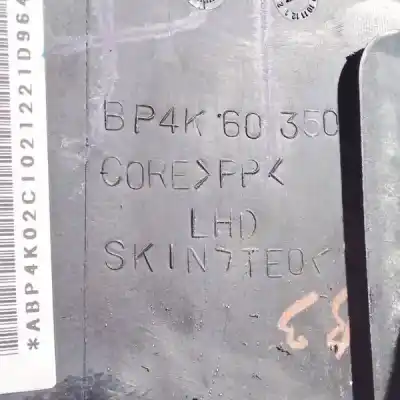 BP4K 60 350
CORE>PP<
LHD
SKIN>TEO<
*ABP4K02C1021221D964